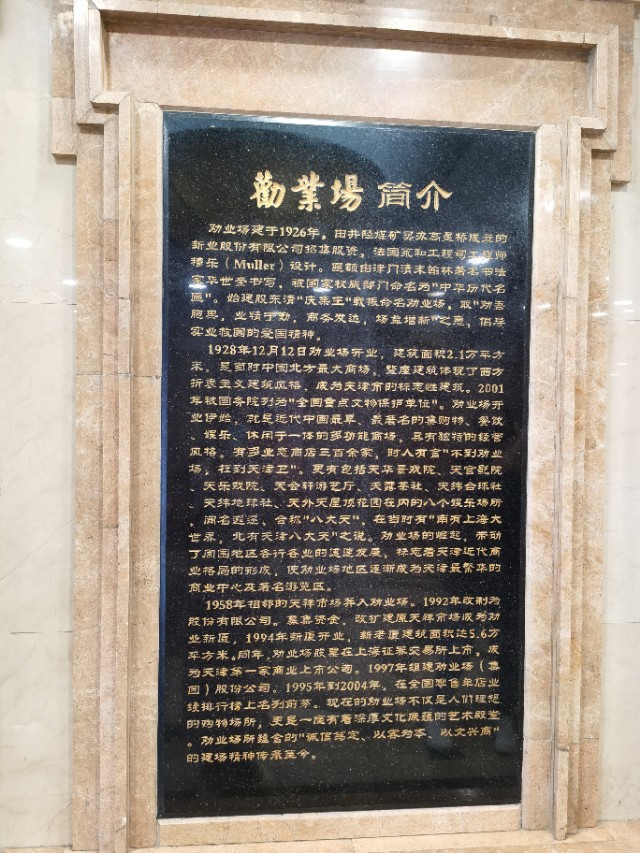 勸業場 简介
劝业场建于1926年，由井陉煤矿买办高星桥成立的
新业股份有限公司招集股资，法国永和工程司工程师
穆乐（Muller）设计。匾额由津门清末翰林著名书法
家华世奎书写，被国家权威部门命名为"中华历代名
匾"。始建股东清"庆亲王"载振命名劝业场，取"劝吾
胞舆，业精于勤，商务发达，场益增新"之意，倡导
实业救国的爱国精神。
1928年12月12日劝业场开业，建筑面积2.1万平方
米，是当时中国北方最大商场，整座建筑体现了西方
折衷主义建筑风格，成为天津市的标志性建筑。2001
年被国务院列为"全国重点文物保护单位"。劝业场开
业伊始，就是近代中国最早、最著名的集购物、餐饮
、娱乐、休闲于一体的多功能商场，具有独特的经营
风格，有多业态商店三百余家，时人有言"不到劝业
场，枉到天津卫"。更有包括天华景戏院、天宫影院
、天乐戏院、天会轩游艺厅、天露茶社、天纬台球社
、天纬地球社、天外天屋顶花园在内的八个娱乐场所
，闻名迩遐，合称"八大天"，在当时有"南有上海大
世界，北有天津八大天"之说。劝业场的崛起，带动
了周围地区各行各业的迅速发展，标志着天津近代商
业格局的形成，使劝业场地区逐渐成为天津最繁华的
商业中心及著名游览区。
1958年相邻的天祥市场并入劝业场。1992年改制为
股份有限公司。募集资金，改扩建原天祥市场成为劝
业新厦，1994年新厦开业，新老厦建筑面积达5.6万
平方米。同年，劝业场股票在上海证券交易所上市，成
为天津第一家商业上市公司。1997年组建劝业场（集
团）股份公司、1995年到2004年，在全国零售单店业
绩排行榜上名列前茅。现在的劝业场不仅是人们理想
的购物场所，更是一座有着深厚文化底蕴的艺术殿堂
。劝业场所蕴含的"诚信笃定、以客为本、以文兴商"
的建场精神传承至今。